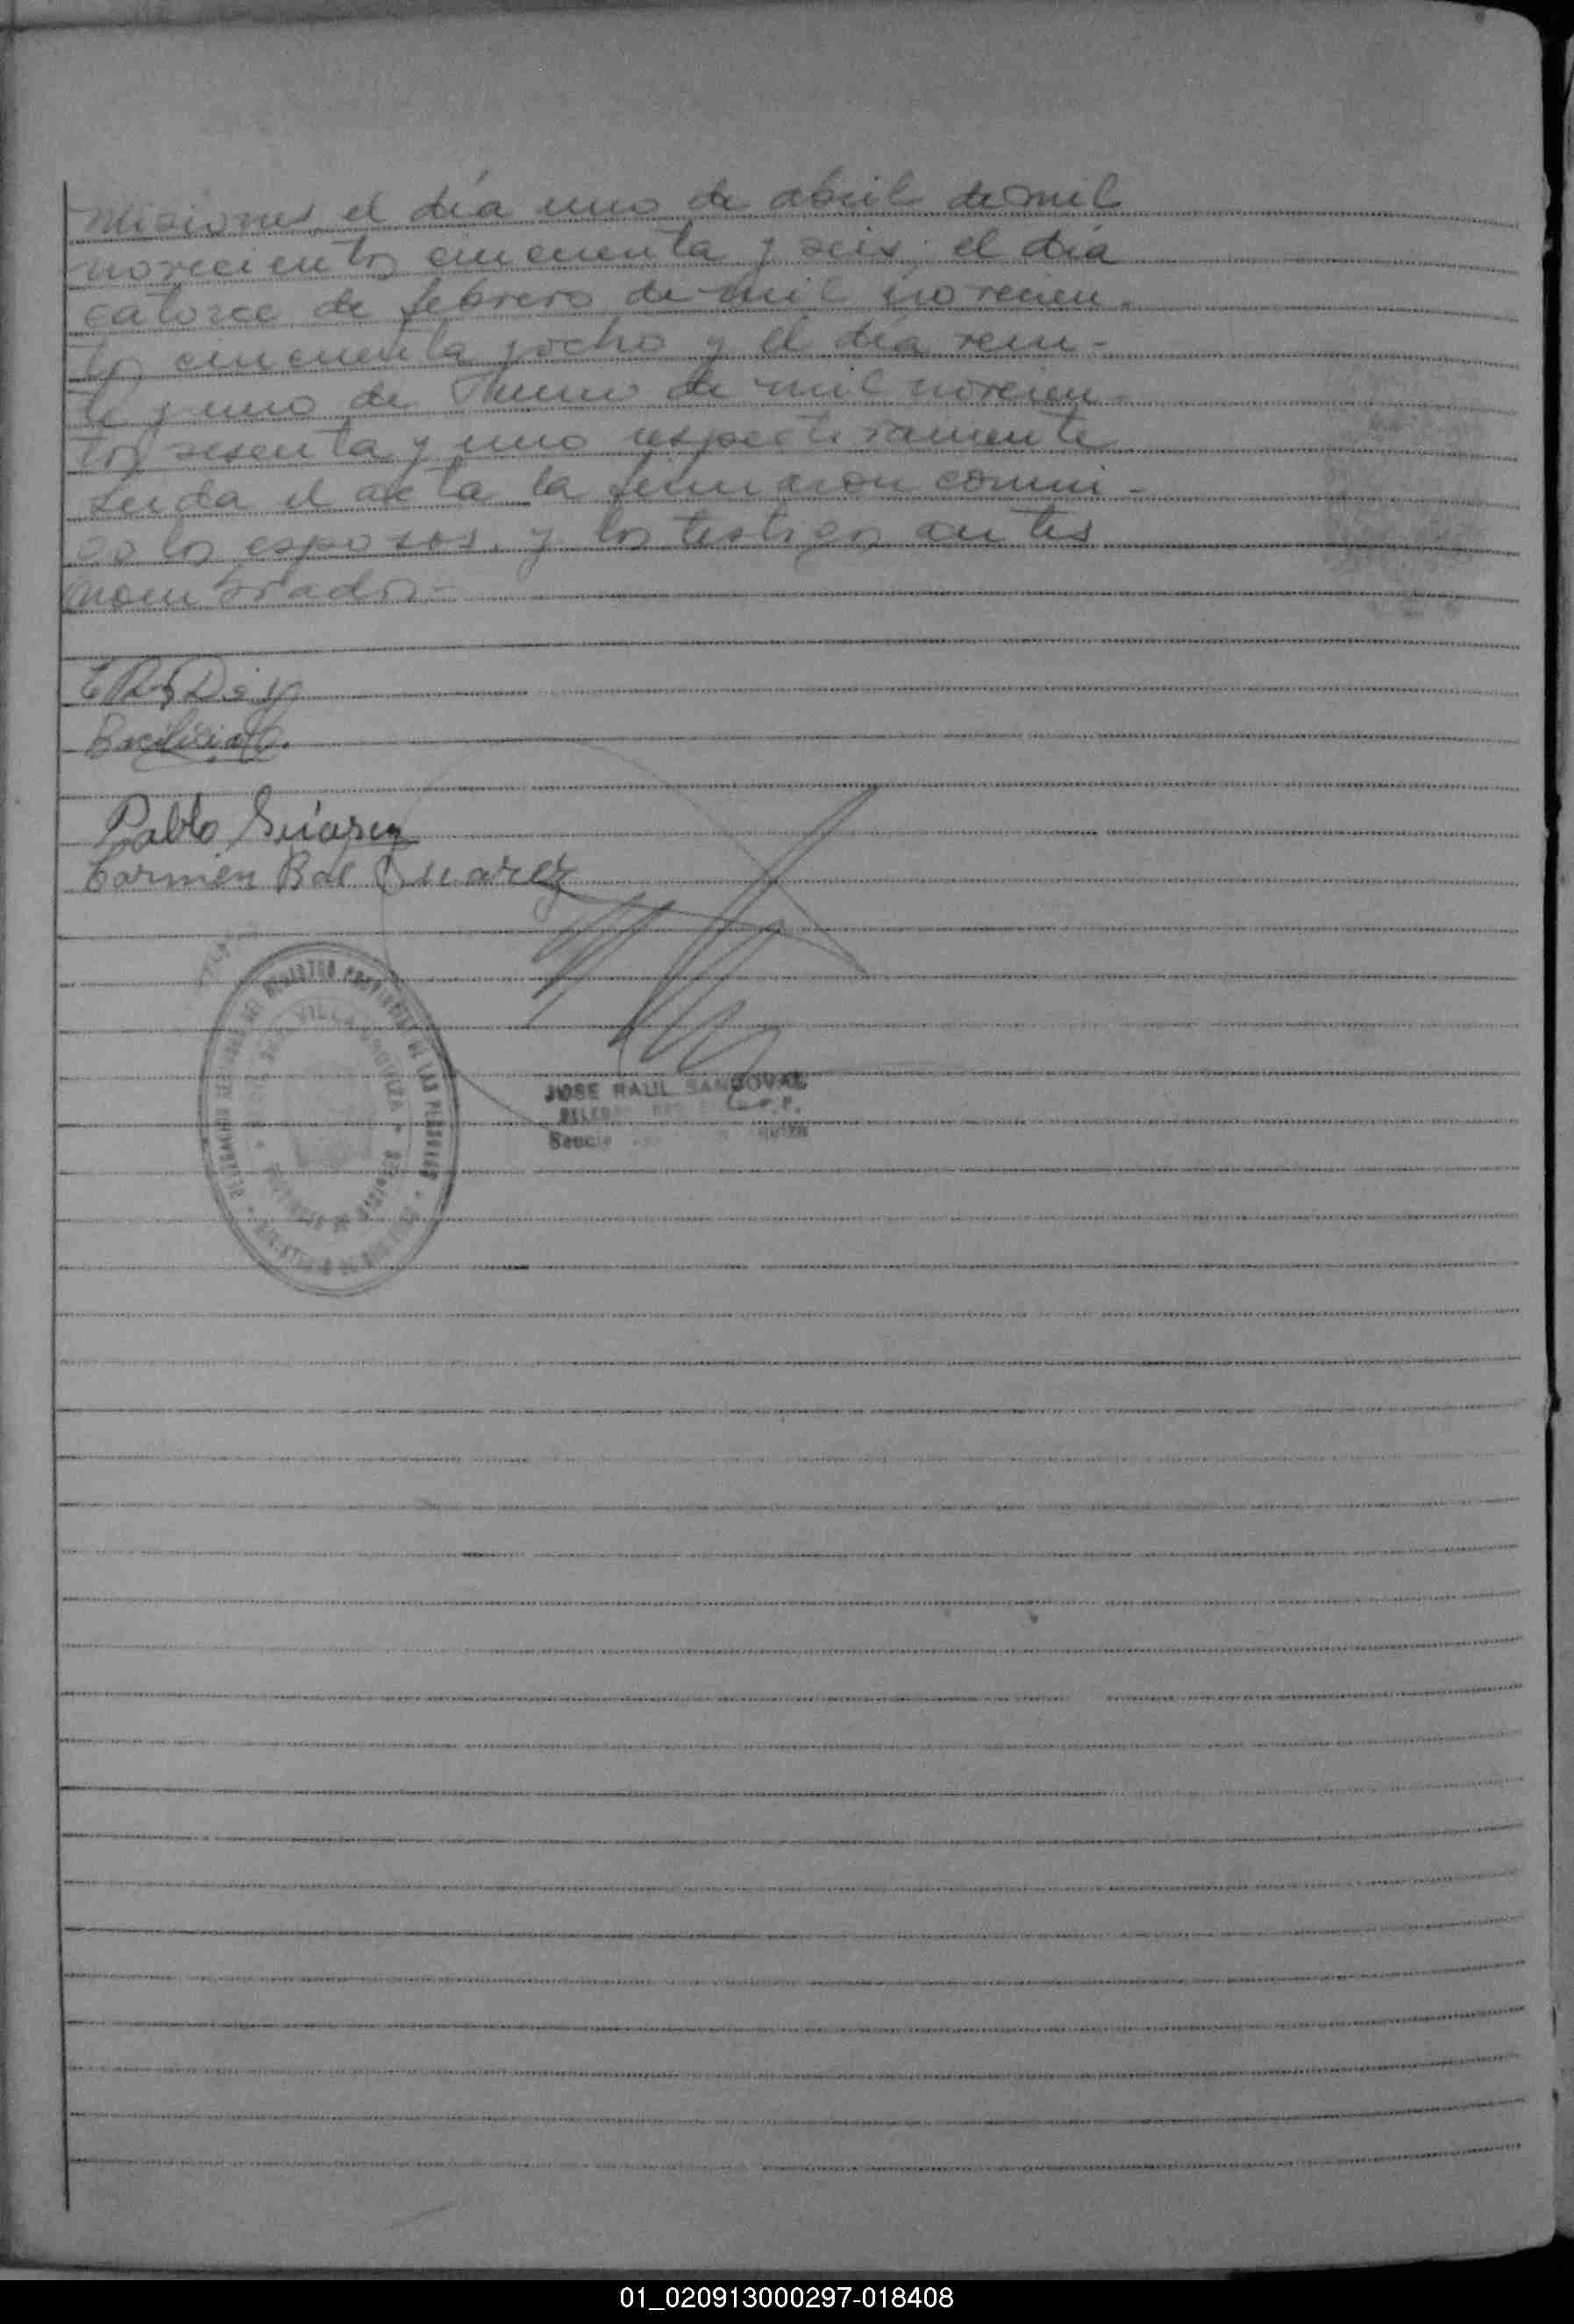 Misiones, el día uno de abril de mil
novecientos cincuenta y seis; el día
catorce de febrero de mil novecien-
tos cincuenta y ocho y el día vein-
te y uno de Junio de mil novecien-
tos sesenta y uno respectivamente
Leída el acta la firmaron conmi-
go los esposos, y los testigos antes
nombrados.-
Pablo Suarez
Carmen B de Suarez
VILLA
DE LAS PERSONAS
JOSE RAUL SANDOVAL
01_020913000297-018408